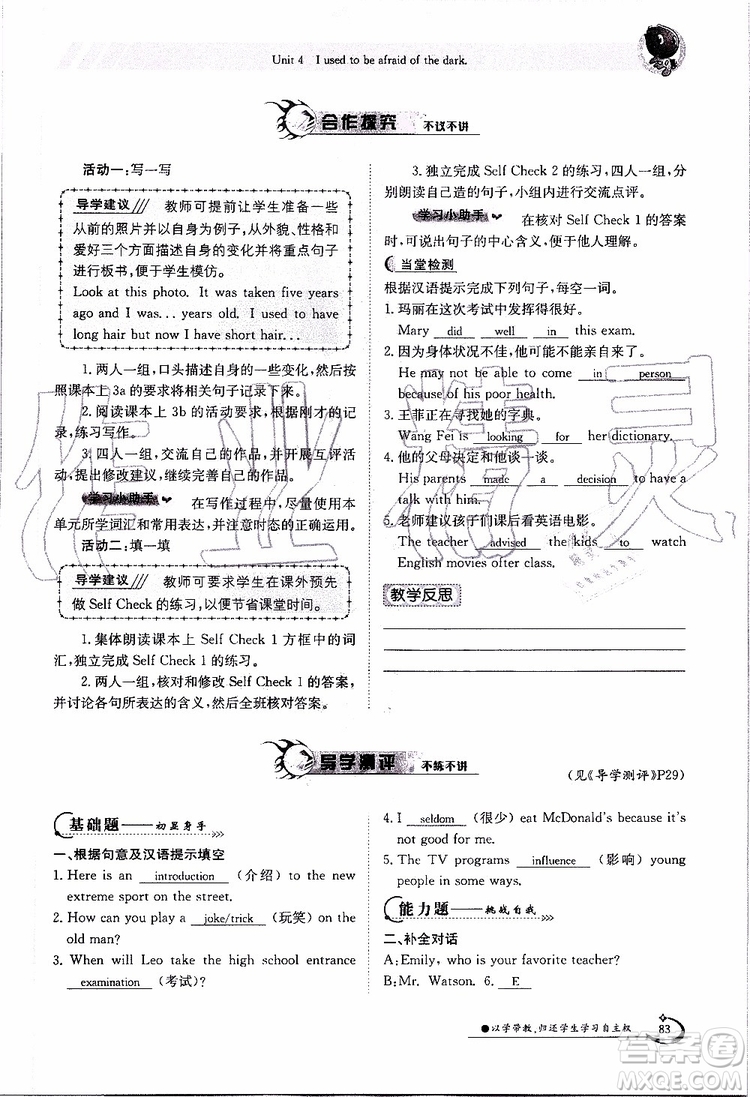 Unit 4 I used to be afraid of the dark.
合作探究 不议不讲
活动一:写一写
导学建议/// 教师可提前让学生准备一些
从前的照片并以自身为例子,从外貌、性格和
爱好三个方面描述自身的变化并将重点句子
进行板书,便于学生模仿。
Look at this photo. It was taken five years
ago and I was... years old. I used to have
long hair but now I have short hair...
1. 两人一组,口头描述自身的一些变化,然后按
照课本上 3a 的要求将相关句子记录下来。
2. 阅读课本上 3b 的活动要求,根据刚才的计
划,练习写作。
3. 四人一组,交流自己的作品,并开展互评活动
,提出修改建议,继续完善自己的作品。
学习小助手 在写作过程中,尽量使用本
单元所学词汇和常用表达,并注意时态的正确运用。
活动二:填一填
导学建议/// 教师可要求学生在课外预先
做 Self Check 的练习,以便节省课堂时间。
1. 集体朗读课本上 Self Check 1 方框中的词
汇,独立完成 Self Check 1 的练习。
2. 两人一组,核对和修改 Self Check 1 的答案,
并讨论各句所表达的含义,然后全班核对答案。
3. 独立完成 Self Check 2 的练习,四人一组,分
别朗读自己造的句子,小组内进行交流点评。
学习小助手 在核对 Self Check 1 的答案
时,可说出句子的中心含义,便于他人理解。
当堂检测
根据汉语提示完成下列句子,每空一词。
1. 玛丽在这次考试中发挥得很好。
Mary did well in this exam.
2. 因为身体状况不佳,他可能无法亲自来。
He may not be able to come in person
because of his poor health.
3. 王菲正在寻找她的字典。
Wang Fei is looking for her dictionary.
4. 他的父母决定和他谈一谈。
His parents made a decision to have a
talk with him.
5. 老师建议孩子们课后看英语电影。
The teacher advised the kids to watch
English movies ofter class.
教学反思
导学测评 不练不讲
(见《导学测评》P29)
基础题——初显身手
一、根据句意及汉语提示填空
1. Here is an introduction (介绍) to the new
extreme sport on the street.
2. How can you play a joke/trick (玩笑) on the
old man?
3. When will Leo take the high school entrance
examination (考试)?
4. I seldom (很少) eat McDonald's because it's
not good for me.
5. The TV programs influence (影响) young
people in some ways.
能力题——挑战自我
二、补全对话
A: Emily, who is your favorite teacher?
B: Mr. Watson. 6. E
●以学带教,归还学生学习自主权
83
作业精灵
答案圈
MXQE.COM